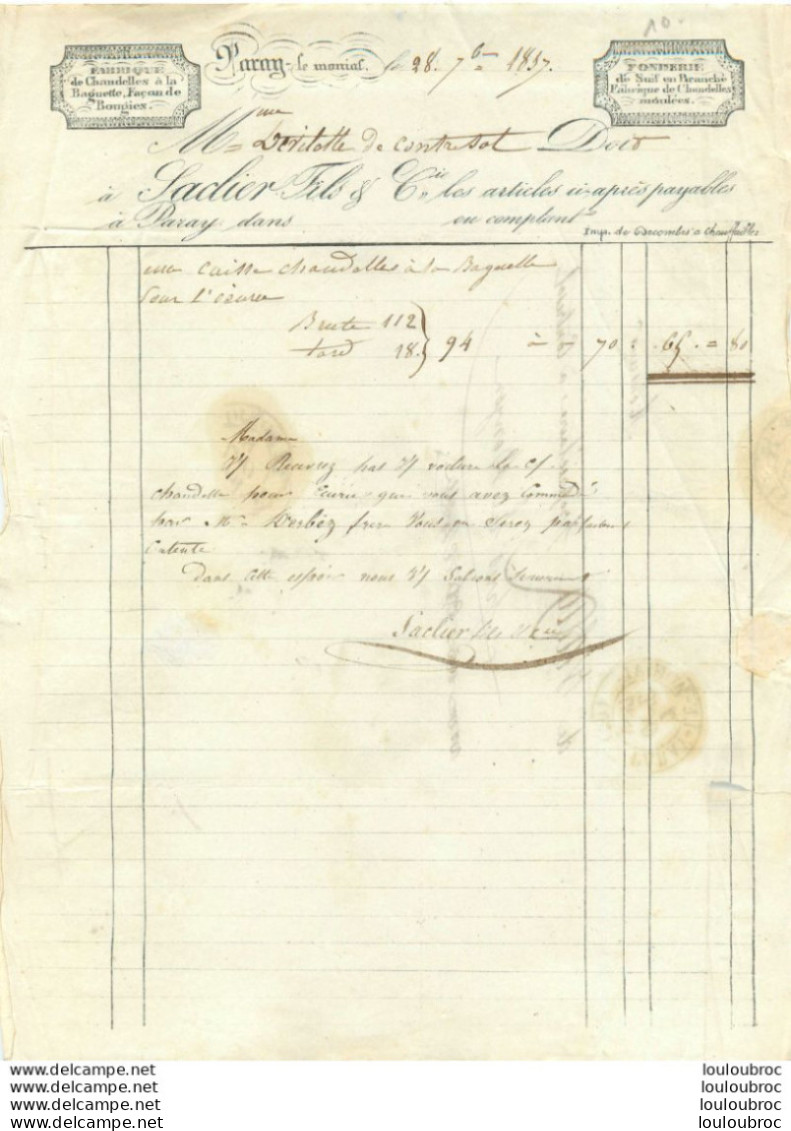 10.
FABRIQUE
de Chandelles à la
Baguette, Façon de
Bougies.
Paray-le monial, le 28. 7b 1857.
FONDERIE
de Suif en Branche
Fabrique de Chandelles
moulées.
Mme de contresol Doit
à Saclier Fils & Cie les articles ci-après payables
à Paray dans en comptant
Imp. de à Chauffailles
une caisse chandelles à la Baguette
pour l'écurie
Brute 112
tard 18. 94 à 70 65. = 80
Madame
Recevrez par voiture la c/
chandelle pour Ecurie que vous avez Commdé
par Mr frere Vous en Serez parfaitemt
Contente
Dans cette espoir nous Saluons
Saclier fils
louloubroc
louloubroc
louloubroc
louloubroc